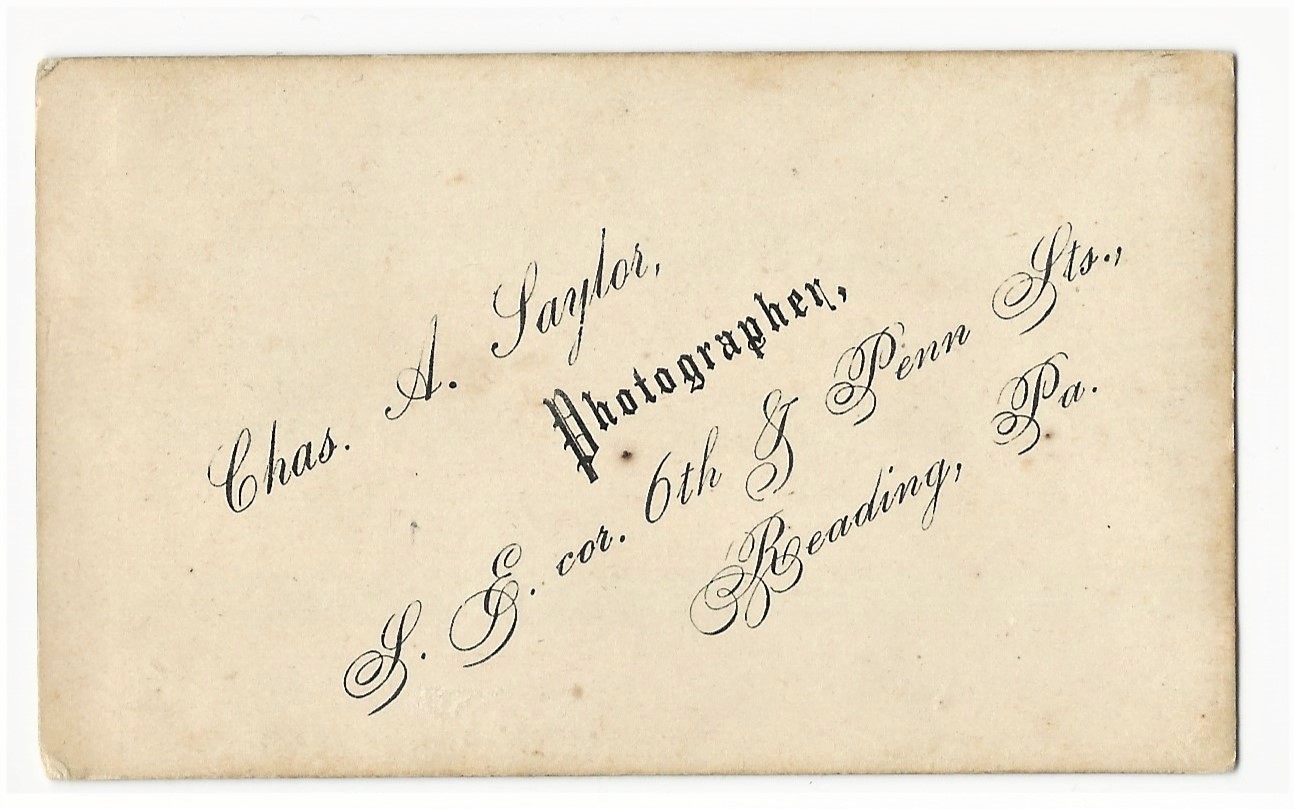 Chas. A. Saylor,
Photographer,
S. E. cor. 6th & Penn Sts.,
Reading, Pa.